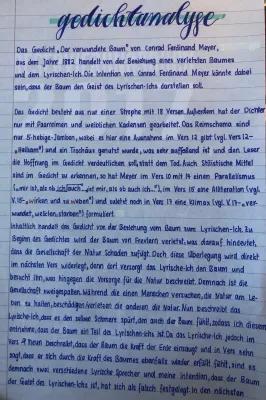 gedichtanalyse
Das Gedicht „Der verwundete Baum" von Conrad Ferdinand Meyer,
aus dem Jahre 1882 handelt von der Beziehung eines verletzten Baumes
und dem Lyrischen-Ich. Die Intention von Conrad Ferdinand Meyer könnte dabei
sein, dass der Baum den Geist des Lyrischen-Ichs darstellen soll.
Das Gedicht besteht aus nur einer Strophe mit 18 Versen. Außerdem hat der Dichter
nur mit Paarreimen und weiblichen Kadenzen gearbeitet. Das Reimschema sind
nur 5-hebige-Jamben, wobei es hier eine Ausnahme im Vers 12 gibt (vgl. Vers 12-
und ein Trochäus genutzt wurde, was sehr auffallend ist und den Leser
die Hoffnung im Gedicht verdeutlichen soll, statt dem Tod. Auch Stilistische Mittel
sind im Gedicht zu erkennen, so hat Meyer im Vers 10 mit 14 einen Parallelismus
(„mir ist, als ob ich auch", „ist mir, als ob auch ich"), im Vers 15 eine Alliteration (vgl.
V.15-„wirken und zu weben") und zuletzt noch in Vers 17 eine Klimax (vgl. V.17-„ver-
wundet, welken, starben") formuliert.
Inhaltlich handelt das Gedicht von der Beziehung vom Baum zum Lyrischen-Ich. Zu
Beginn des Gedichtes wird der Baum von Frevlern verletzt, was darauf hindeutet,
dass die Gesellschaft der Natur Schaden zufügt. Doch, diese Überlegung wird direkt
im nächsten Vers widerlegt, denn dort versorgt das Lyrische-Ich den Baum und
besucht ihn, was hingegen die Vorsorge für die Natur beschreibt. Demnach ist die
Gesellschaft zweigespalten. Während die einen Menschen versuchen, die Natur am Le-
ben zu halten, beschädigen/verletzen die anderen die Natur. Nun beschreibt das
Lyrische-Ich, dass es den selben Schmerz spürt, den auch der Baum fühlt, sodass ich diesem
entnehme, dass der Baum ein Teil des Lyrischen-Ichs ist. Da das Lyrische-Ich jedoch im
Vers 9 beschreibt, dass der Baum die Kraft der Erde einsaugt und in Vers zehn
sagt, dass er sich durch die Kraft des Baumes ebenfalls wieder erfüllt fühlt, sind es
demnach zwei verschiedene Lyrische Sprecher und meine Intention, dass der Baum
der Geist des Lyrischen-Ichs ist, hat sich als falsch festgelegt. In den nächsten